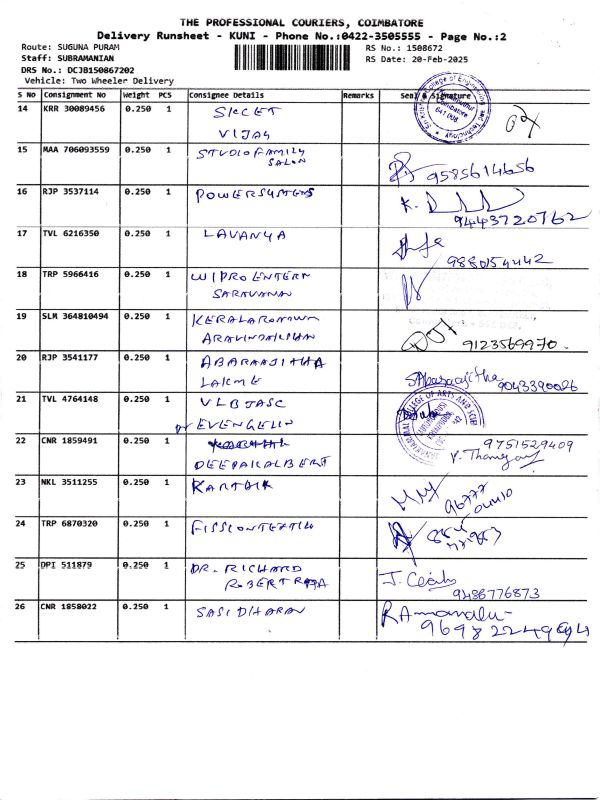 THE PROFESSIONAL COURIERS, COIMBATORE
Delivery Runsheet - KUNI - Phone No.:0422-3505555 - Page No.:2
Route: SUGUNA PURAM
RS No.: 1508672
Staff: SUBRAMANIAN
RS Date: 20-Feb-2025
DRS No.: DCJB150867202
Vehicle: Two Wheeler Delivery
S No Consignment No Weight PCS Consignee Details Remarks Seal & Signature
14 KRR 30089456 0.250 1 SKCET
VIJAY
15 MAA 706093559 0.250 1 STUDIO FAMILY
SALON
9585614656
16 RJP 3537114 0.250 1 POWERSYSTEMS
K.
9443720762
17 TVL 6216350 0.250 1 LAVANYA
9880154442
18 TRP 5966416 0.250 1 WIPRO ENTERR
SARAVANAN
19 SLM 364810494 0.250 1
9123569970.
20 RJP 3541177 0.250 1 ABARAAJITHA
LAKME
9043390026
21 TVL 4764148 0.250 1 VLBJASC
EVENGELIN
22 CNR 1859491 0.250 1
DEEPAKALBERT
9751529409
23 NKL 3511255 0.250 1 KARTHIK
96777
24 TRP 6870320 0.250 1 FISSIONTEXTILE
25 DPI 511879 0.250 1 DR. RICHARD
ROBERT RAJA
J.
9486776873
26 CNR 1858022 0.250 1 SASIDHARAN